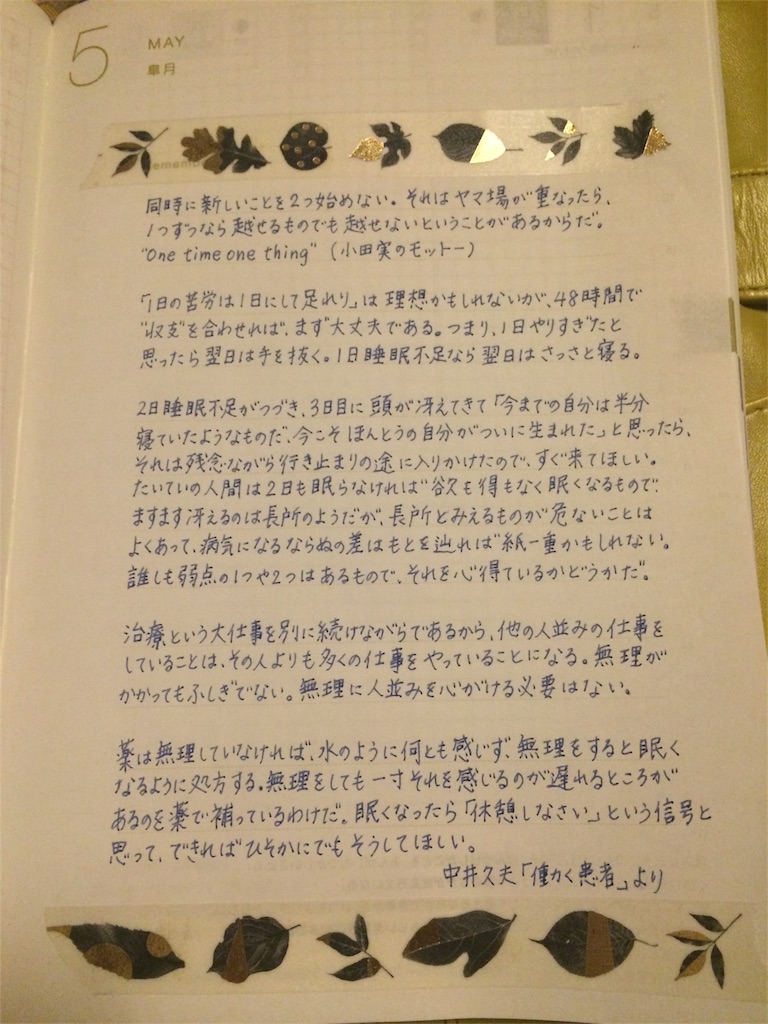 5
MAY
皐月
同時に新しいことを2つ始めない。それはヤマ場が重なったら、
1つずつなら越せるものでも越せないということがあるからだ。
"One time one thing" (小田実のモットー)
「1日の苦労は1日にして足れり」は理想かもしれないが、48時間で
"収支"を合わせれば、まず大丈夫である。つまり、1日やりすぎたと
思ったら翌日は手を抜く。1日睡眠不足なら翌日はさっさと寝る。
2日睡眠不足がつづき、3日目に頭が冴えてきて「今までの自分は半分
寝ていたようなものだ、今こそほんとうの自分がついに生まれた」と思ったら、
それは残念ながら行き止まりの途に入りかけたので、すぐ来てほしい。
たいていの人間は2日も眠らなければ否も得もなく眠くなるもので、
ますます冴えるのは長所のようだが、長所とみえるものが危ないことは
よくあって、病気になるならぬの差はもとを辿れば紙一重かもしれない。
誰しも弱点の1つや2つはあるもので、それを心得ているかどうかだ。
治療という大仕事を別に続けながらであるから、他の人並みの仕事を
していることは、その人よりも多くの仕事をやっていることになる。無理が
かかってもふしぎでない。無理に人並みを心がける必要はない。
薬は無理していなければ、水のように何とも感じず、無理をすると眠く
なるように処方する。無理をしても一寸それを感じるのが遅れるところが
あるのを薬で補っているわけだ。眠くなったら「休憩しなさい」という信号と
思って、できればひそかにでもそうしてほしい。
中井久夫「働く患者」より